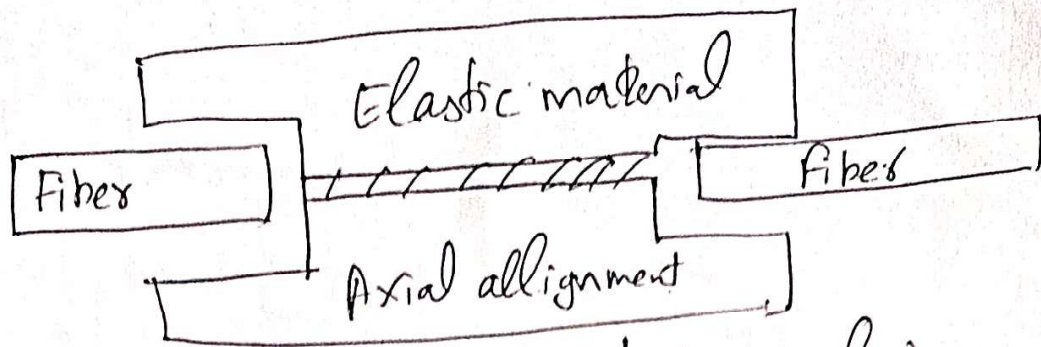 Elastic material
Fiber
Fiber
Axial allignment